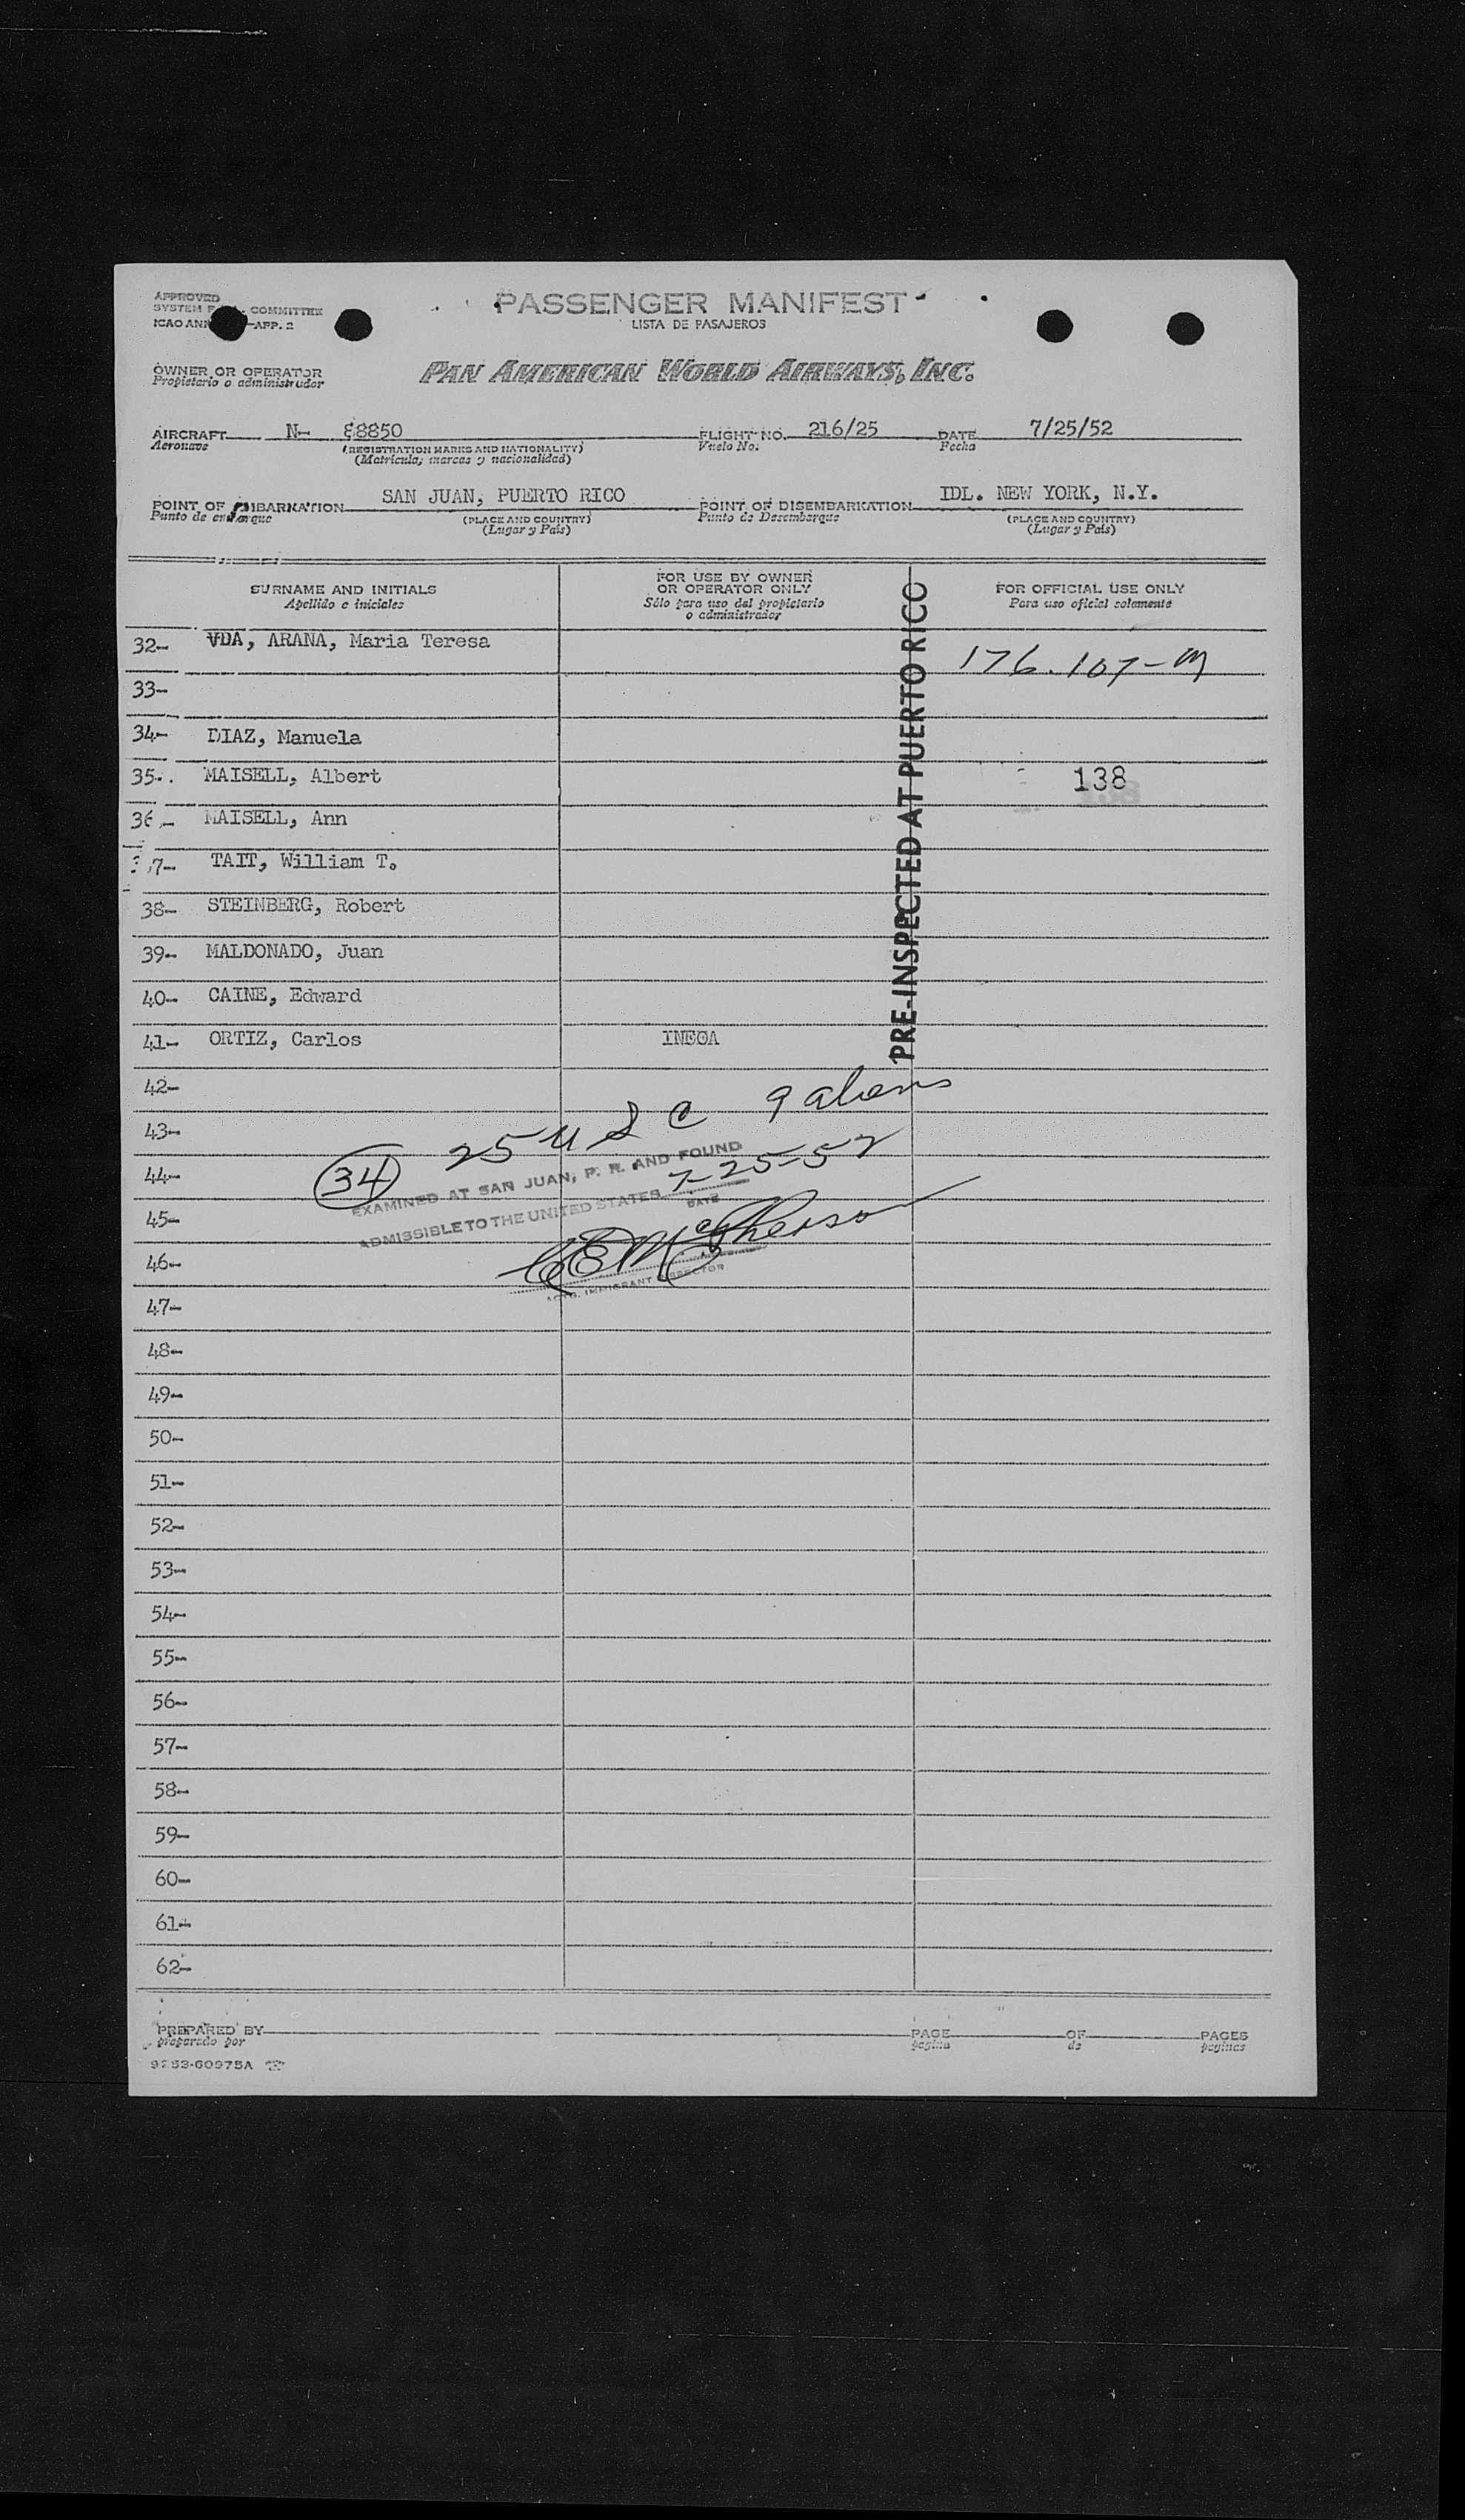 APPROVED
PASSENGER MANIFEST
SYSTEM COMMITTEE
LISTA DE PASAJEROS
ICAO ANN APP. 2
OWNER OR OPERATOR
Propietario o administrador
PAN AMERICAN WORLD AIRWAYS, INC.
AIRCRAFT N- 88850 FLIGHT NO. 216/25 DATE 7/25/52
Aeronave (REGISTRATION MARKS AND NATIONALITY) Vuelo No. Fecha
(Matricula, marcas y nacionalidad)
POINT OF EMBARKATION SAN JUAN, PUERTO RICO POINT OF DISEMBARKATION IDL. NEW YORK, N.Y.
Punto de embarque (PLACE AND COUNTRY) Punto de Desembarque (PLACE AND COUNTRY)
(Lugar y País) (Lugar y País)
SURNAME AND INITIALS FOR USE BY OWNER OR OPERATOR ONLY FOR OFFICIAL USE ONLY
Apellido e iniciales Sólo para uso del propietario o administrador Para uso oficial solamente
PRE-INSPECTED AT PUERTO RICO
32- VDA, ARANA, Maria Teresa 176.107-M
33-
34- DIAZ, Manuela
35- MAISELL, Albert 138
36- MAISELL, Ann
37- TAIT, William T.
38- STEINBERG, Robert
39- MALDONADO, Juan
40- CAINE, Edward
41- ORTIZ, Carlos
42-
25 U S C 9 aliens
43-
44- 34
EXAMINED AT SAN JUAN, P. R. AND FOUND
ADMISSIBLE TO THE UNITED STATES 7-25-52
DATE
45-
46- McPherson
IMMIGRANT INSPECTOR
47-
48-
49-
50-
51-
52-
53-
54-
55-
56-
57-
58-
59-
60-
61-
62-
PREPARED BY PAGE OF PAGES
preparado por pagina de paginas